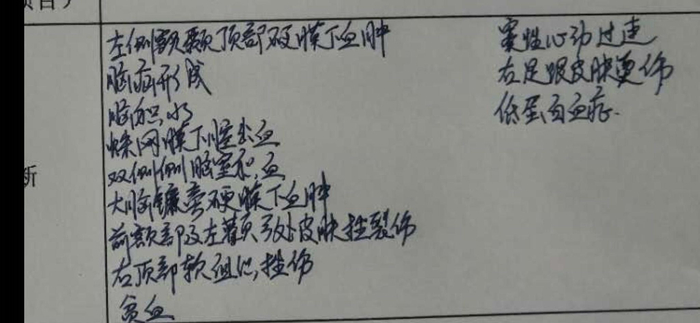 项目)
左侧额颞顶部硬膜下血肿
脑疝形成
脑积水
蛛网膜下腔出血
双侧侧脑室积血
大脑镰旁硬膜下血肿
前额部及左颧弓处皮肤挫裂伤
右顶部软组织挫伤
贫血
窦性心动过速
右足跟皮肤烫伤
低蛋白血症.
断